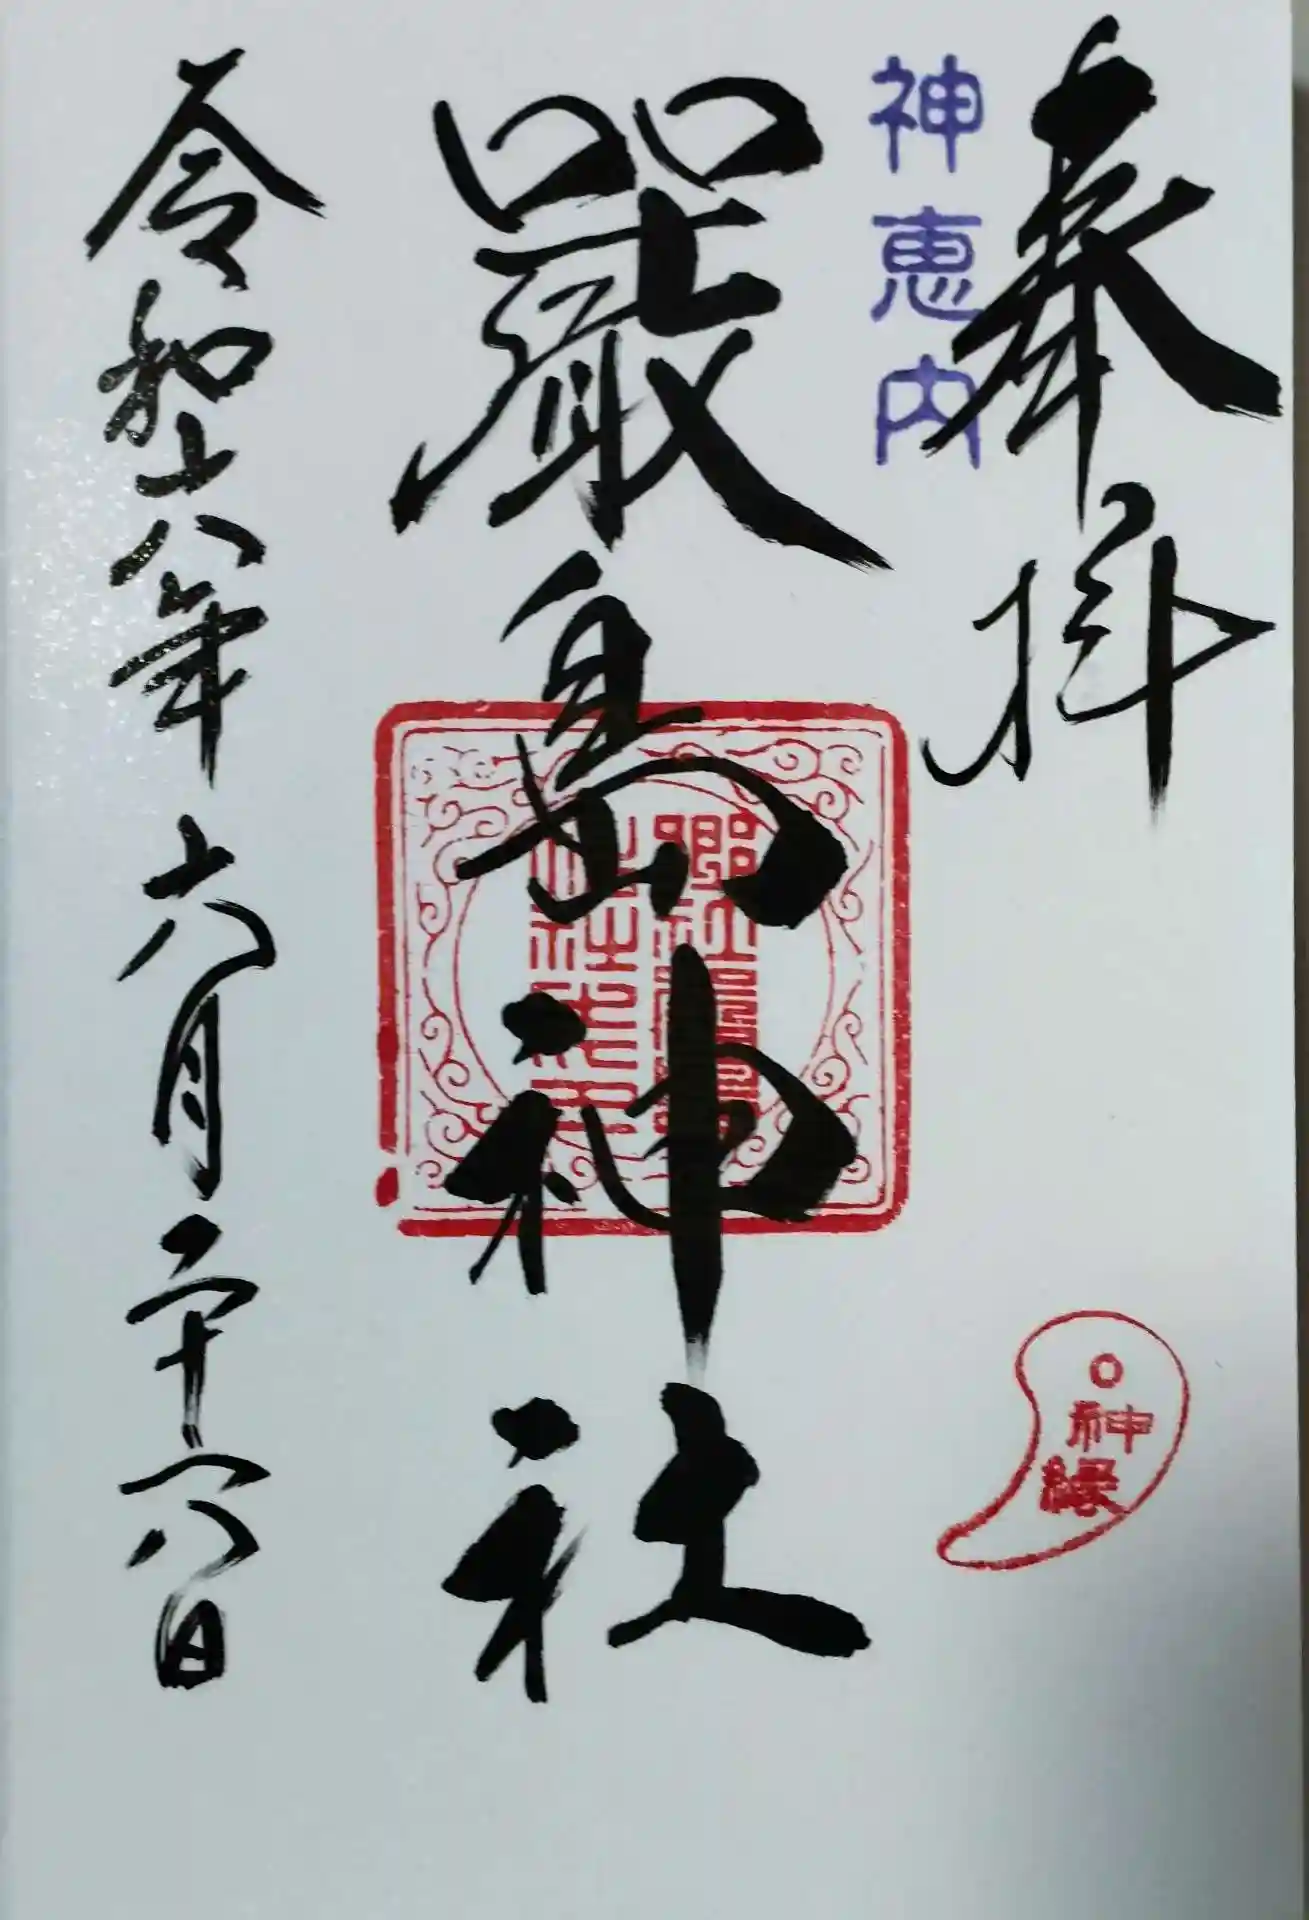 奉拝
神恵内
神縁
嚴島神社
令和六年六月二十八日